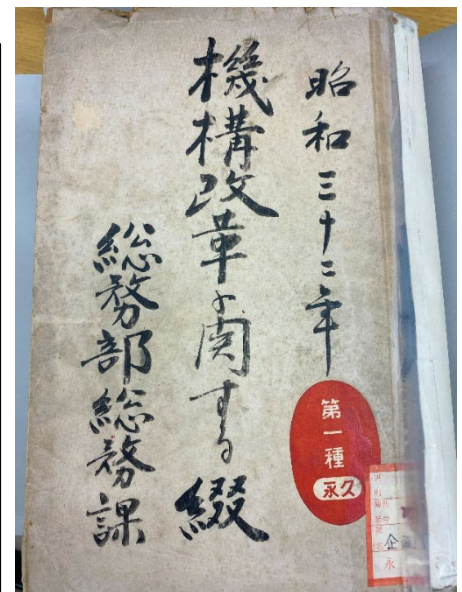 昭和三十二年
機構改革に関する綴
総務部総務課
第一種
永久
企
永